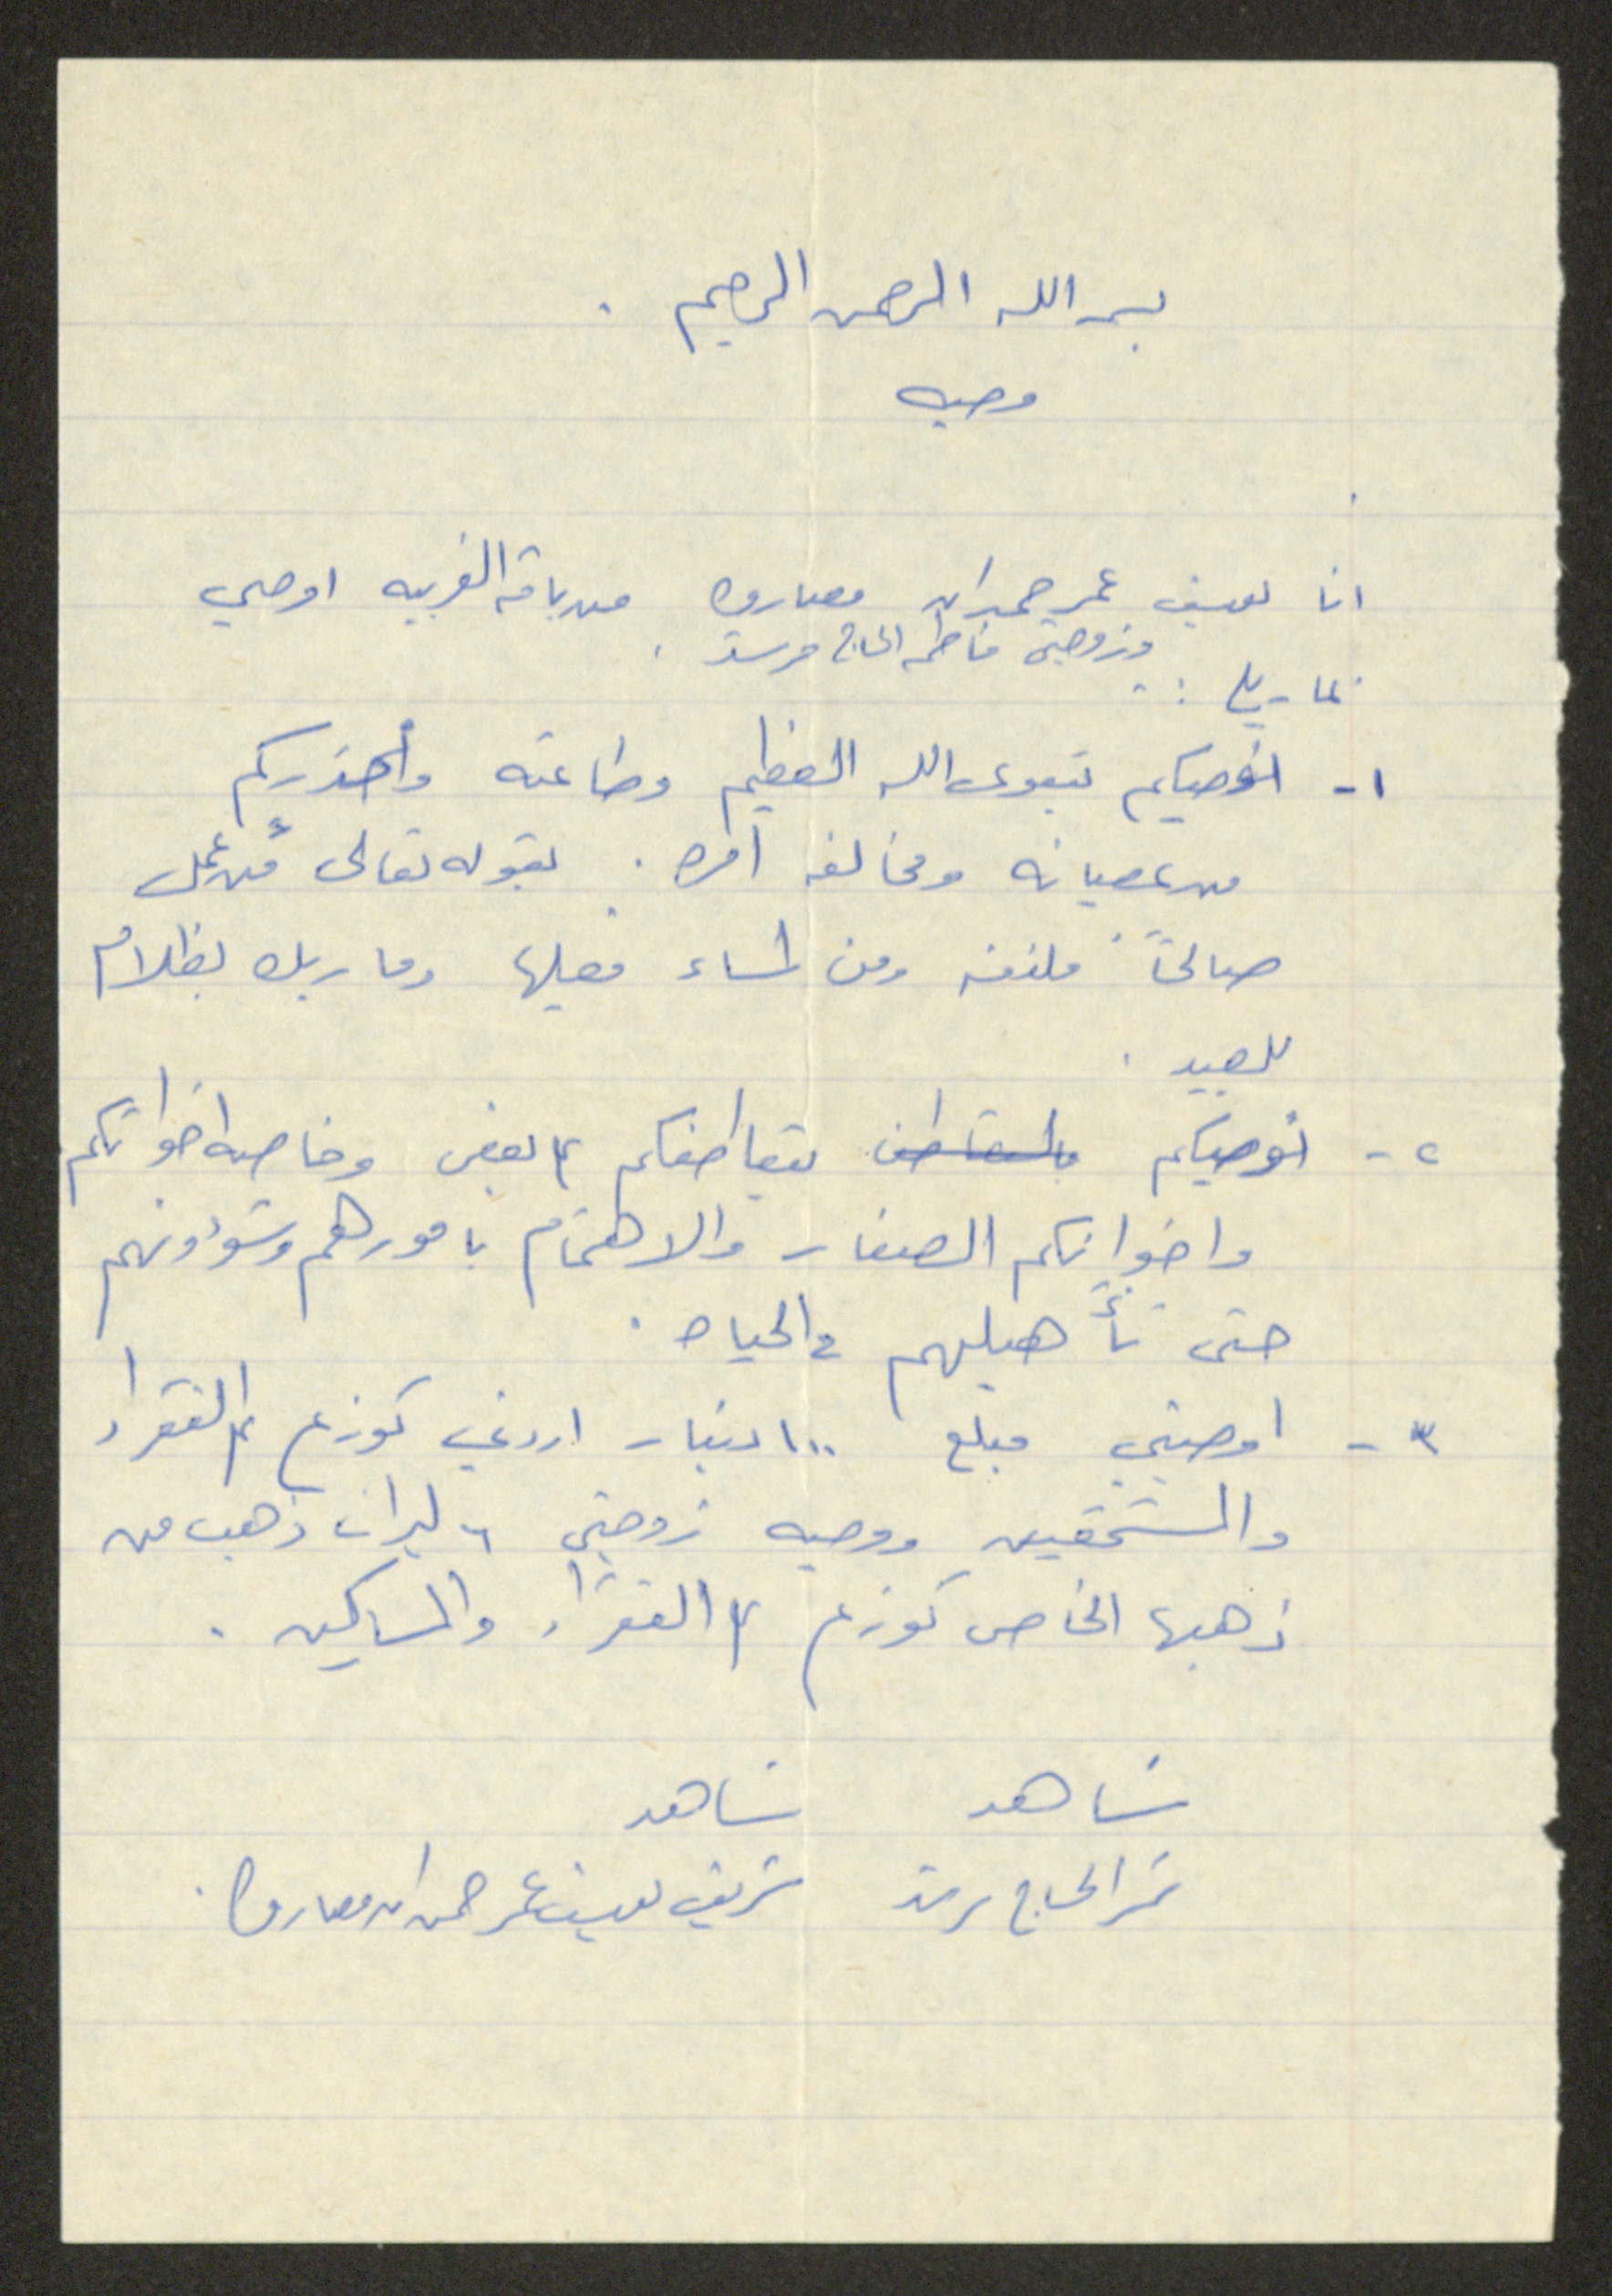 بسم الله الرحمن الرحيم .
وصيه
انا لعيف عمر حمدان مصاروه من باقه الغربيه اوصي
وزوجتي فاطمه الحاج مرسد .
بما يلي :
١- اوصيكم بتقوى الله العظيم وطاعته وأحذركم
من عصيانه ومخالفه امره . بقوله تعالى من عمل
صالحاً فلنفسه ومن اساء فعليها وما ربك بظلام
للعبيد .
٢- نوصيكم بالتعاطف بتعاطفكم ع بعض وخاصه اخواتكم
واخوانكم الصغار والاهتمام بامورهم وشؤونهم
حتى تأهيلهم في الحياه .
٣- اوصيتي مبلغ ١٠٠ دينار اردني توزع ع الفقراء
والمستحقين ووصيه زوجتي ٦ ليرات ذهب من
ذهبها الخاص توزع ع الفقراء والمساكين .
شاهد شاهد
نمر الحاج مرسد شريف لعيف عمر حمدان مصاروه .